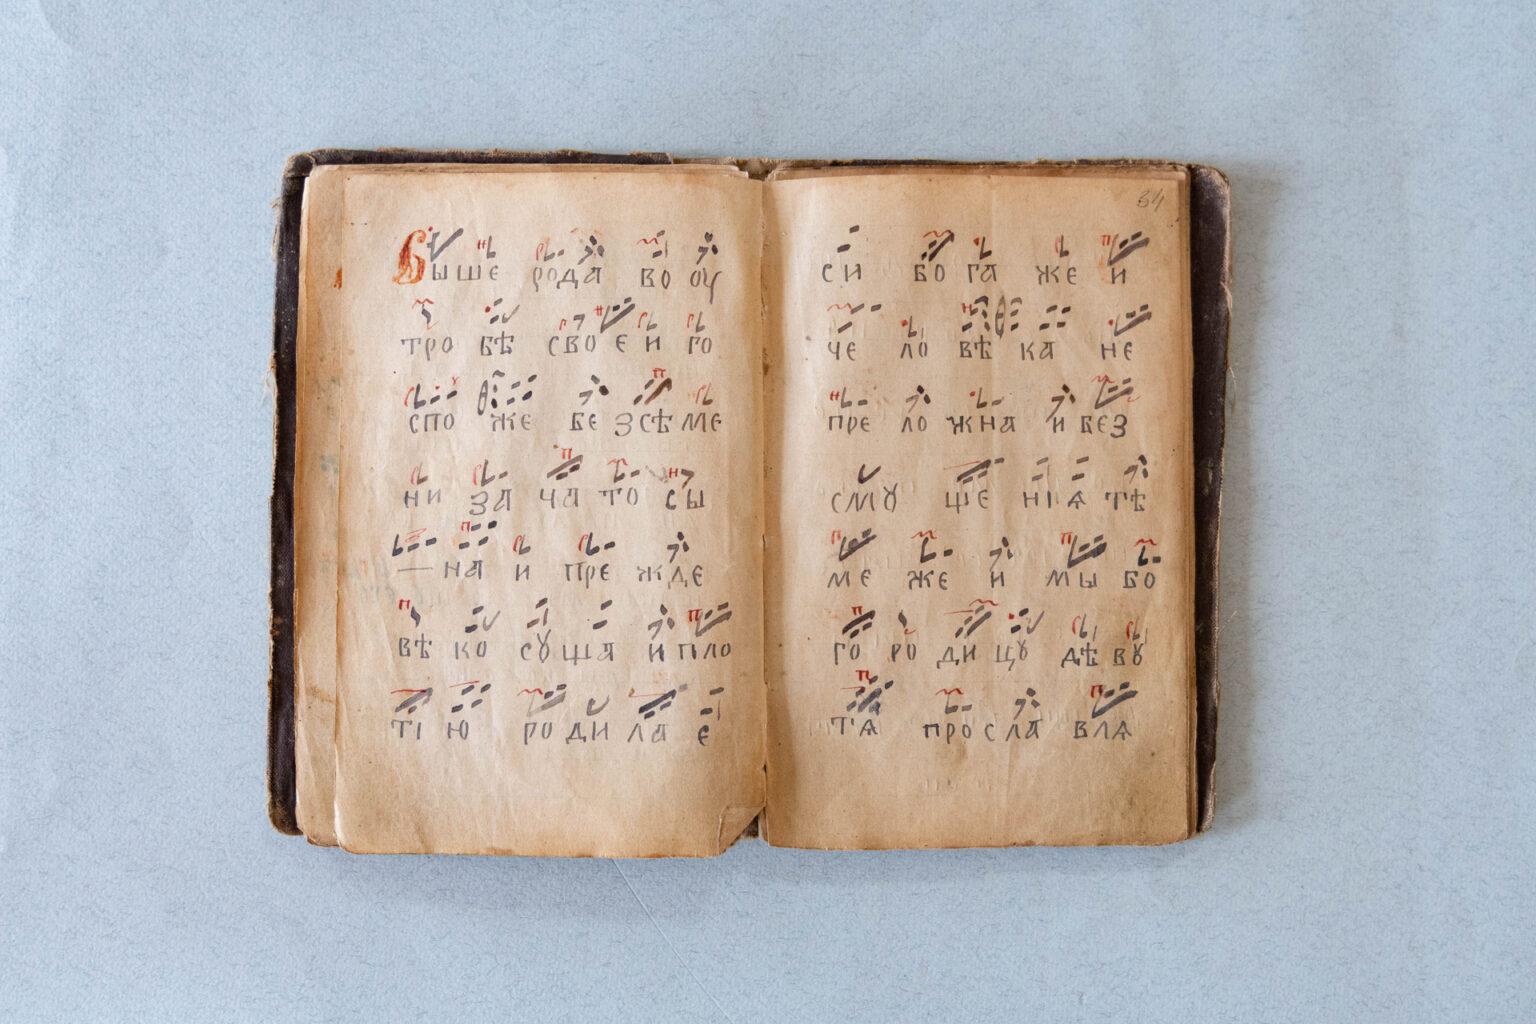 Выше рода во оу
тро бѣ сво е и го
спо же бе з сѣ ме
ни за ча то сы
— на и пре жде
вѣ ко сꙋ ща и пло
ті ю ро ди ла е
34
си бо га же и
че ло вѣ ка не
пре ло жна и без
смꙋ ще ні ѧ тѣ
ме же и мы бо
го ро ди цꙋ дѣ вꙋ
тѧ про сла влѧ